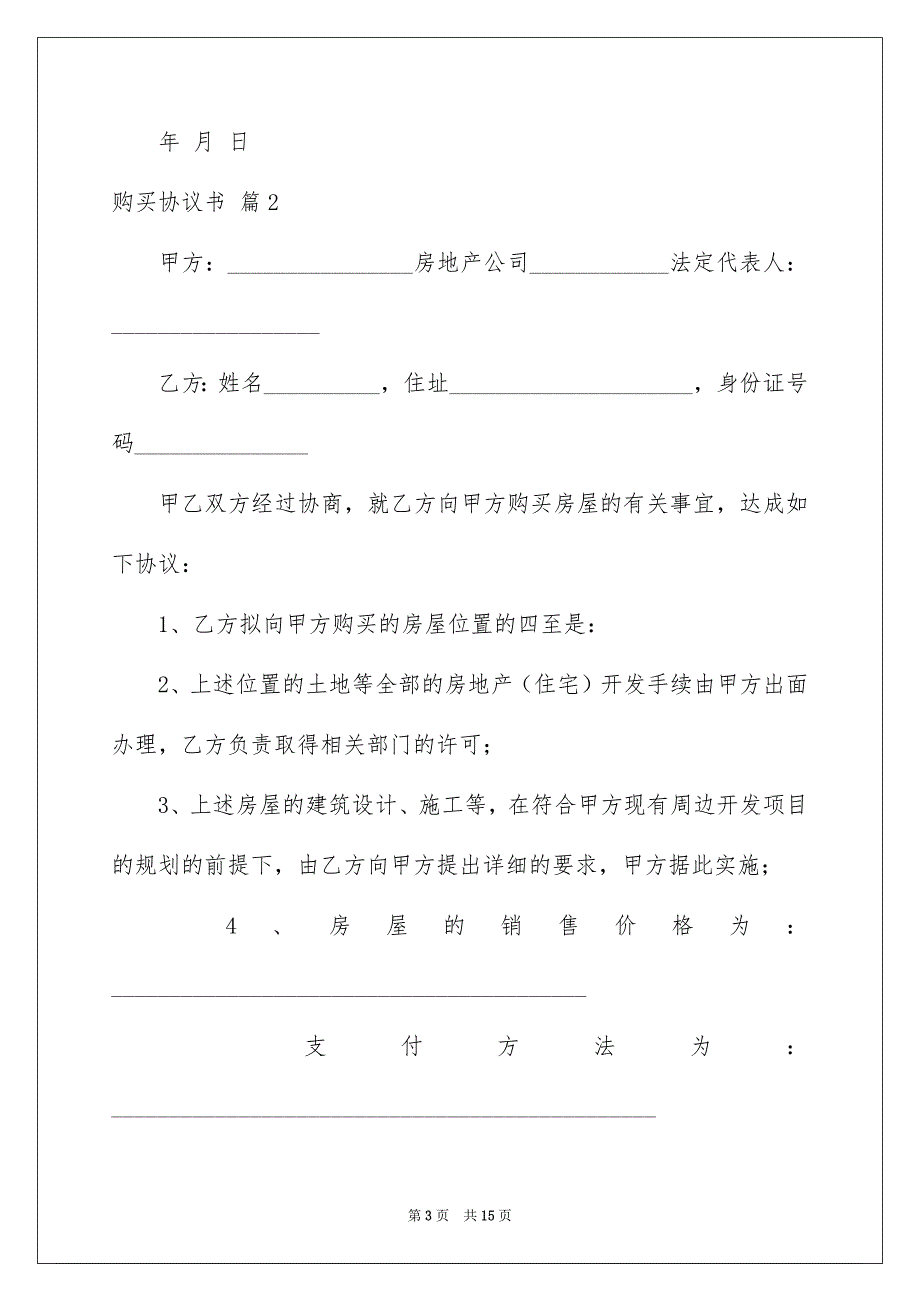 年 月 日
购买协议书 篇2
甲方：________________房地产公司____________法定代表人：
__________________
乙方：姓名__________，住址_____________________，身份证号
码_______________
甲乙双方经过协商，就乙方向甲方购买房屋的有关事宜，达成如
下协议：
1、乙方拟向甲方购买的房屋位置的四至是：
2、上述位置的土地等全部的房地产（住宅）开发手续由甲方出面
办理，乙方负责取得相关部门的许可；
3、上述房屋的建筑设计、施工等，在符合甲方现有周边开发项目
的规划的前提下，由乙方向甲方提出详细的要求，甲方据此实施；
4、房屋的销售价格为：
_________________________________________
支付方法为：
_______________________________________________
第 3 页 共 15 页